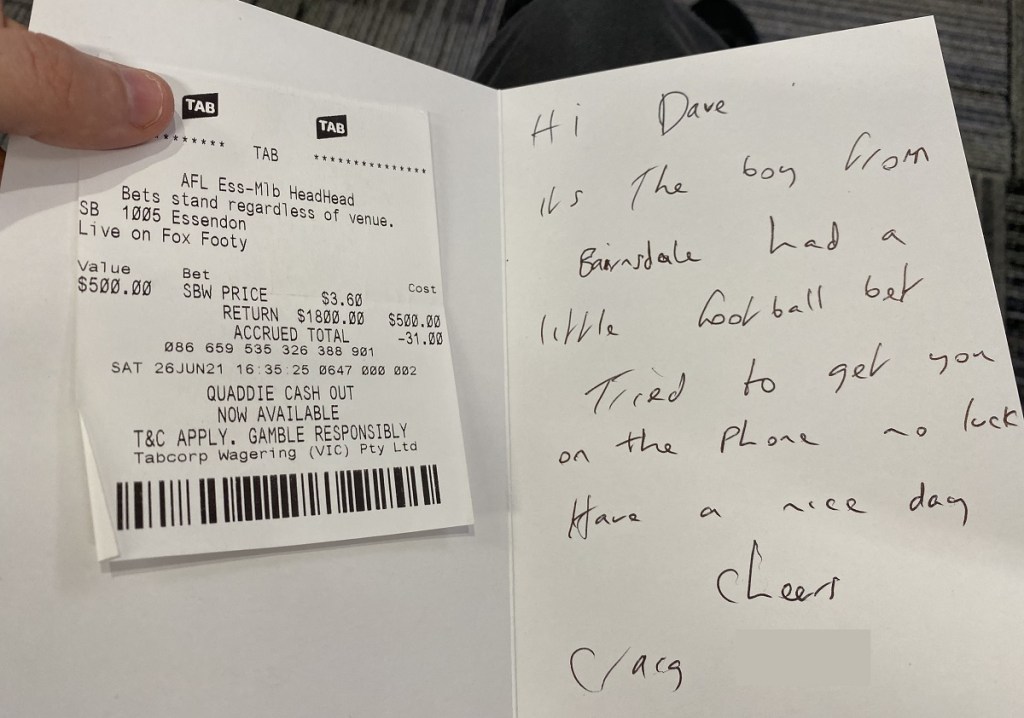 TAB
TAB
******** TAB ***************
AFL Ess-Mlb HeadHead
Bets stand regardless of venue.
SB 1005 Essendon
Live on Fox Footy
Value Bet Cost
$500.00 SBW PRICE $3.60
RETURN $1800.00 $500.00
ACCRUED TOTAL -31.00
086 659 535 326 388 901
SAT 26JUN21 16:35:25 0647 000 002
QUADDIE CASH OUT
NOW AVAILABLE
T&C APPLY. GAMBLE RESPONSIBLY
Tabcorp Wagering (VIC) Pty Ltd
Hi Dave
its The boy from
Bairnsdale had a
little football bet
Tried to get you
on the Phone no luck
Have a nice day
Cheers